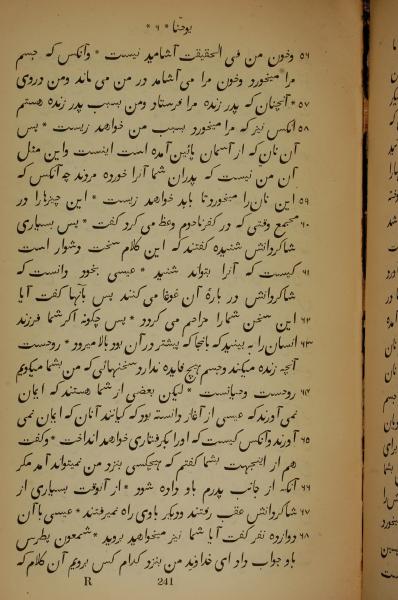 یوحنا * ۶ *
۵۶ وخون من فی الحقیقت آشامید نیست * وآنکس که جسم
مرا میخورد وخون مرا می آشامد در من می ماند ومن دروی
۵۷ * آنچنان که پدر زنده مرا فرستاد ومن بسبب پدر زنده هستم
۵۸ آنکس نیز که مرا میخورد بسبب من خواهد زیست * پس
آن نان که از آسمان پائین آمده است اینست واین مثل
آن من نیست که پدران شما آنرا خورده مردند چه آنکس که
۵۹ این نان را میخورد تا باید خواهد زیست * این چیزها را در
۶۰ مجمع وقتی که در کفرناحوم وعظ می کرد گفت * پس بسیاری
شاکردانش شنیده گفتند که این کلام سخت دشوار است
۶۱ کیست که آنرا بتواند شنید * عیسی بخود دانست که
شاکردانش در بارهٔ آن غوغا می کنند پس بآنها گفت آیا
۶۲ این سخن شما را مزاحم می کردد * پس چکونه اکر شما فرزند
۶۳ انسان را به بینید که بآنجا که پیشتر در آن بود بالا میرود * روحست
آنچه زنده میکند وجسم هیچ فایده ندارد سخنهائی که من بشما میکویم
۶۴ روحست وحیاتست * لیکن بعضی از شما هستند که ایمان
نمی آورند که عیسی از آغاز دانسته بود که کیانند آنان که ایمان نمی
۶۵ آورند وآنکس کیست که او را بکرفتاری خواهد انداخت * وگفت
هم از اینجهت بشما گفتم که هیچکسی بنزد من نمیتواند آمد مکر
۶۶ آنکه از جانب پدرم باو داده شود * از آنوقت بسیاری از
۶۷ شاکردانش عقب رفتند ودیکر باوی راه نمیرفتند * عیسی بآن
۶۸ دوازده نفر گفت آیا شما نیز میخواهید بروید * شمعون پطرس
باو جواب داد ای خداوند من بنزد کدام کس برویم آن کلام که
R 241